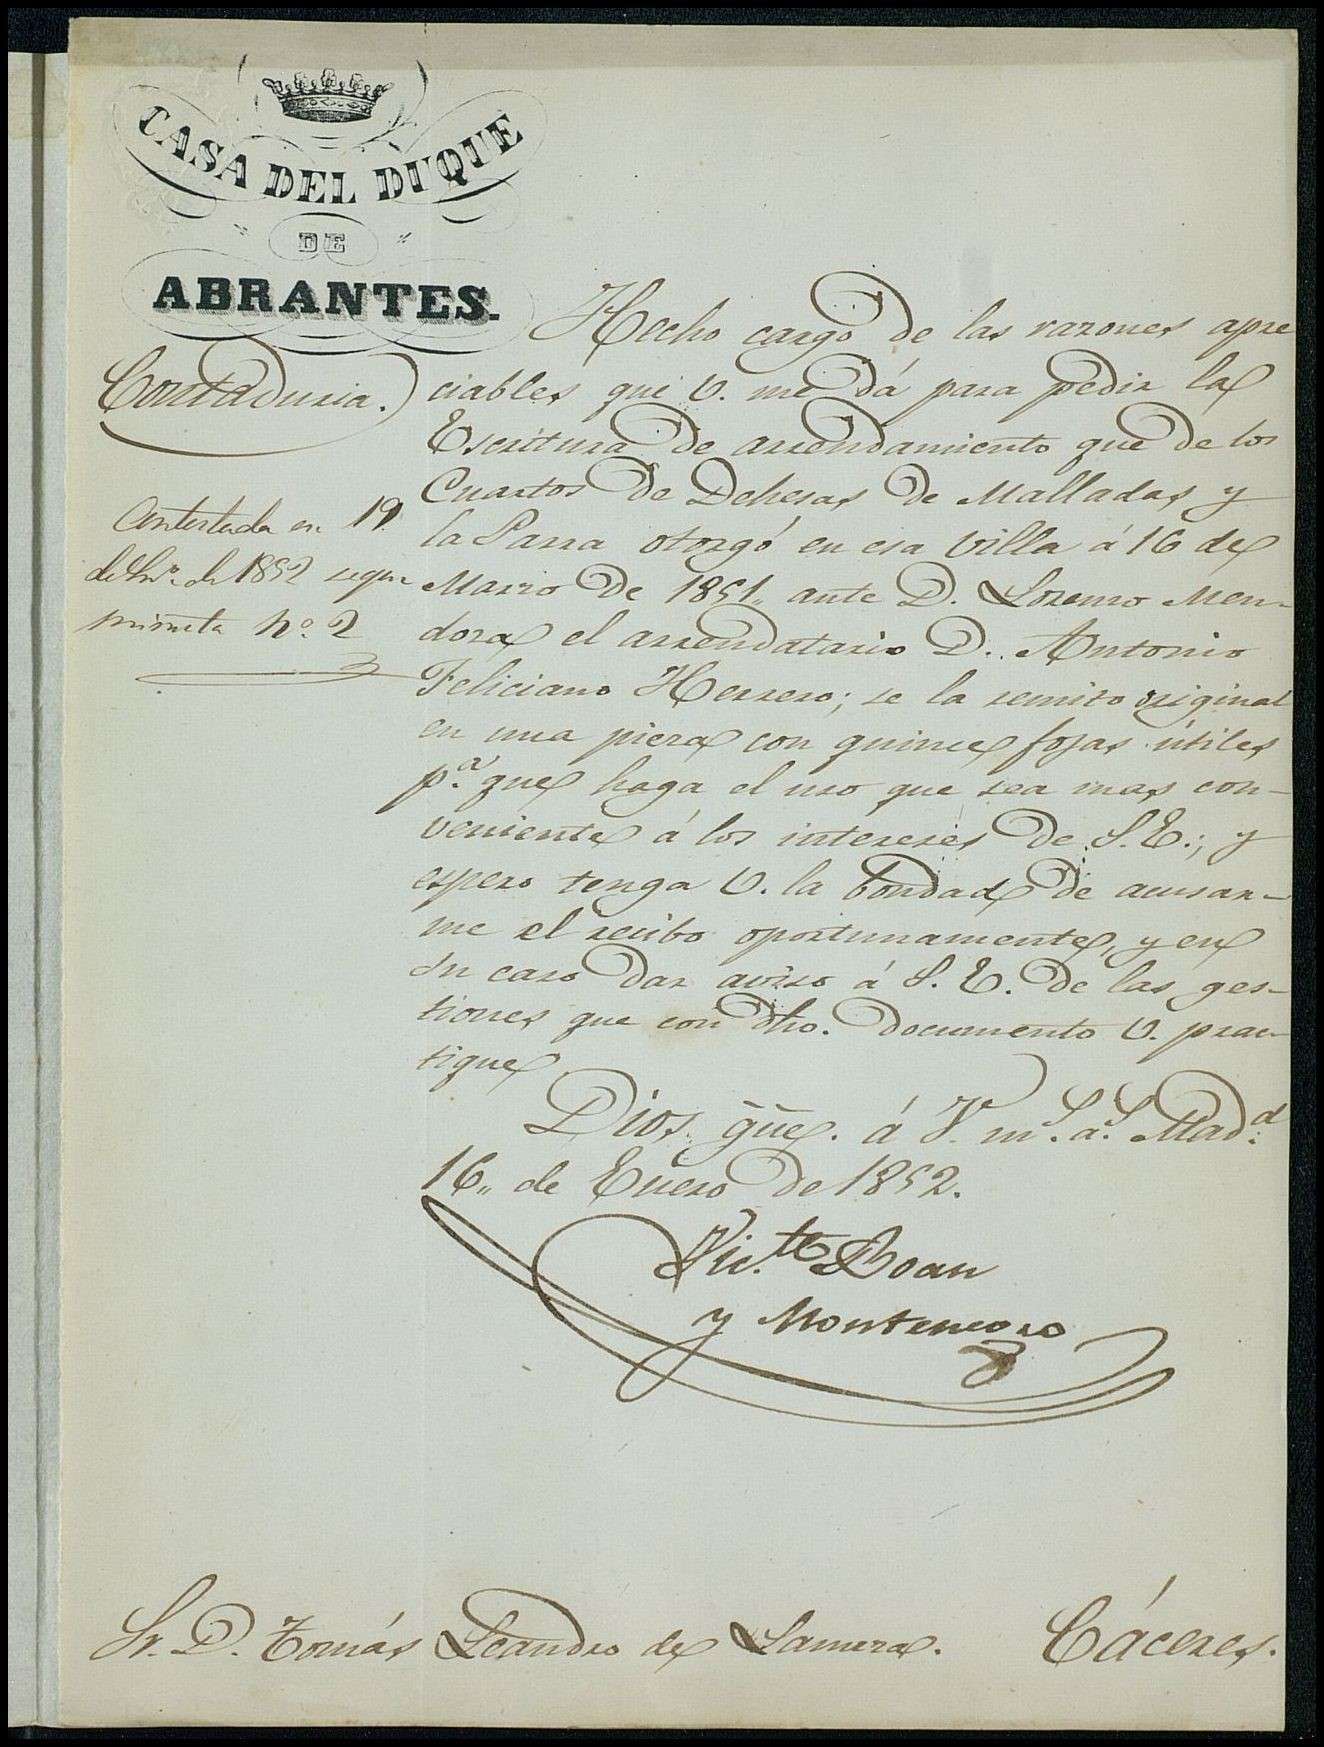 CASA DEL DUQUE
DE
ABRANTES.
Contaduria.
Contestada en 19.
de En.º de 1852 segun
minuta nº. 2
Hecho cargo de las razones apre
ciables que V. me dá para pedir la
Escritura de arrendamiento que de los
Cuartos de Dehesas de Malladas y
la Parra otorgó en esa Villa á 16 de
Marzo de 1851,, ante D. Lorenzo Men-
doza el arrendatario D. Antonio
Feliciano Herrero; se la remito original
en una pieza con quince fojas útiles
p.ª que haga el uso que sea mas con-
veniente á los intereses de S.E.; y
espero tenga V. la bondad de acusar-
me el recibo oportunamente, y en
su caso dar aviso á S. E. de las ges-
tiones que con dho. documento V. prac-
tique
Dios güe. á V. m.s a.s Mad.d
16,, de Enero de 1852.
Vic.te Boan
y Montenegro
Sr. D. Tomás Leandro de Lamera. Cáceres.